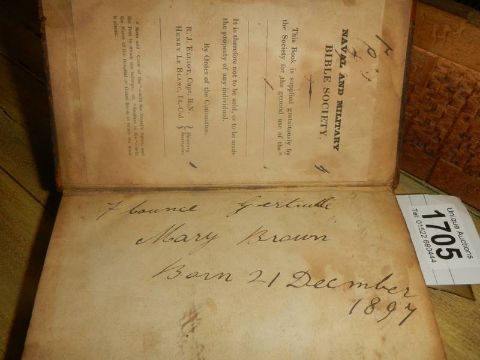 NAVAL AND MILITARY
BIBLE SOCIETY.
This Book is supplied gratuitously by
the Society for the general use of the
It is therefore not to be sold, or to be made
the property of any individual.
By Order of the Committee.
R. J. ELLIOT, Capt. R.N.
HENRY LE BLANC, Lt.-Col.
Honorary
Secretaries
Flounce Gertrude
Mary Brown
Born 21 Decmber
1897
Unique Auctions
1705
Tel: 01522 690444